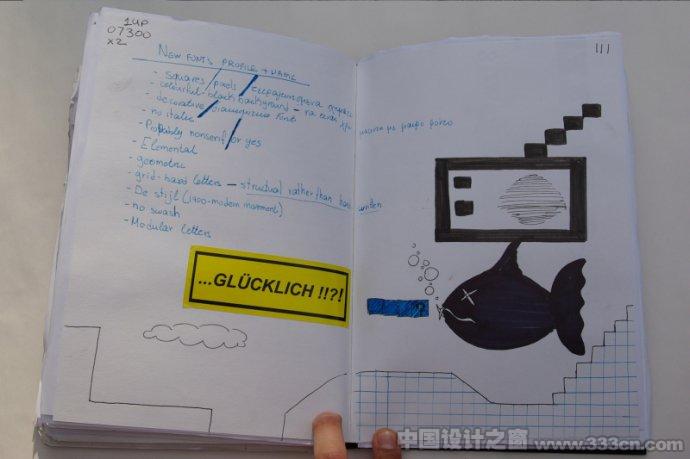 1UP
07300
x2
NEW FONT'S PROFILE + NAME
- squares / pixels
- colourful - black background -
- decorative
- no italic
- Probably nonserif or yes
- Elemental
- geometric
- grid-based letters - structural rather than hand written
- De stijl (1900-modern movement)
- no swash
- Modular letters
111
...GLÜCKLICH !!?!
?
中国设计之窗
www.333cn.com